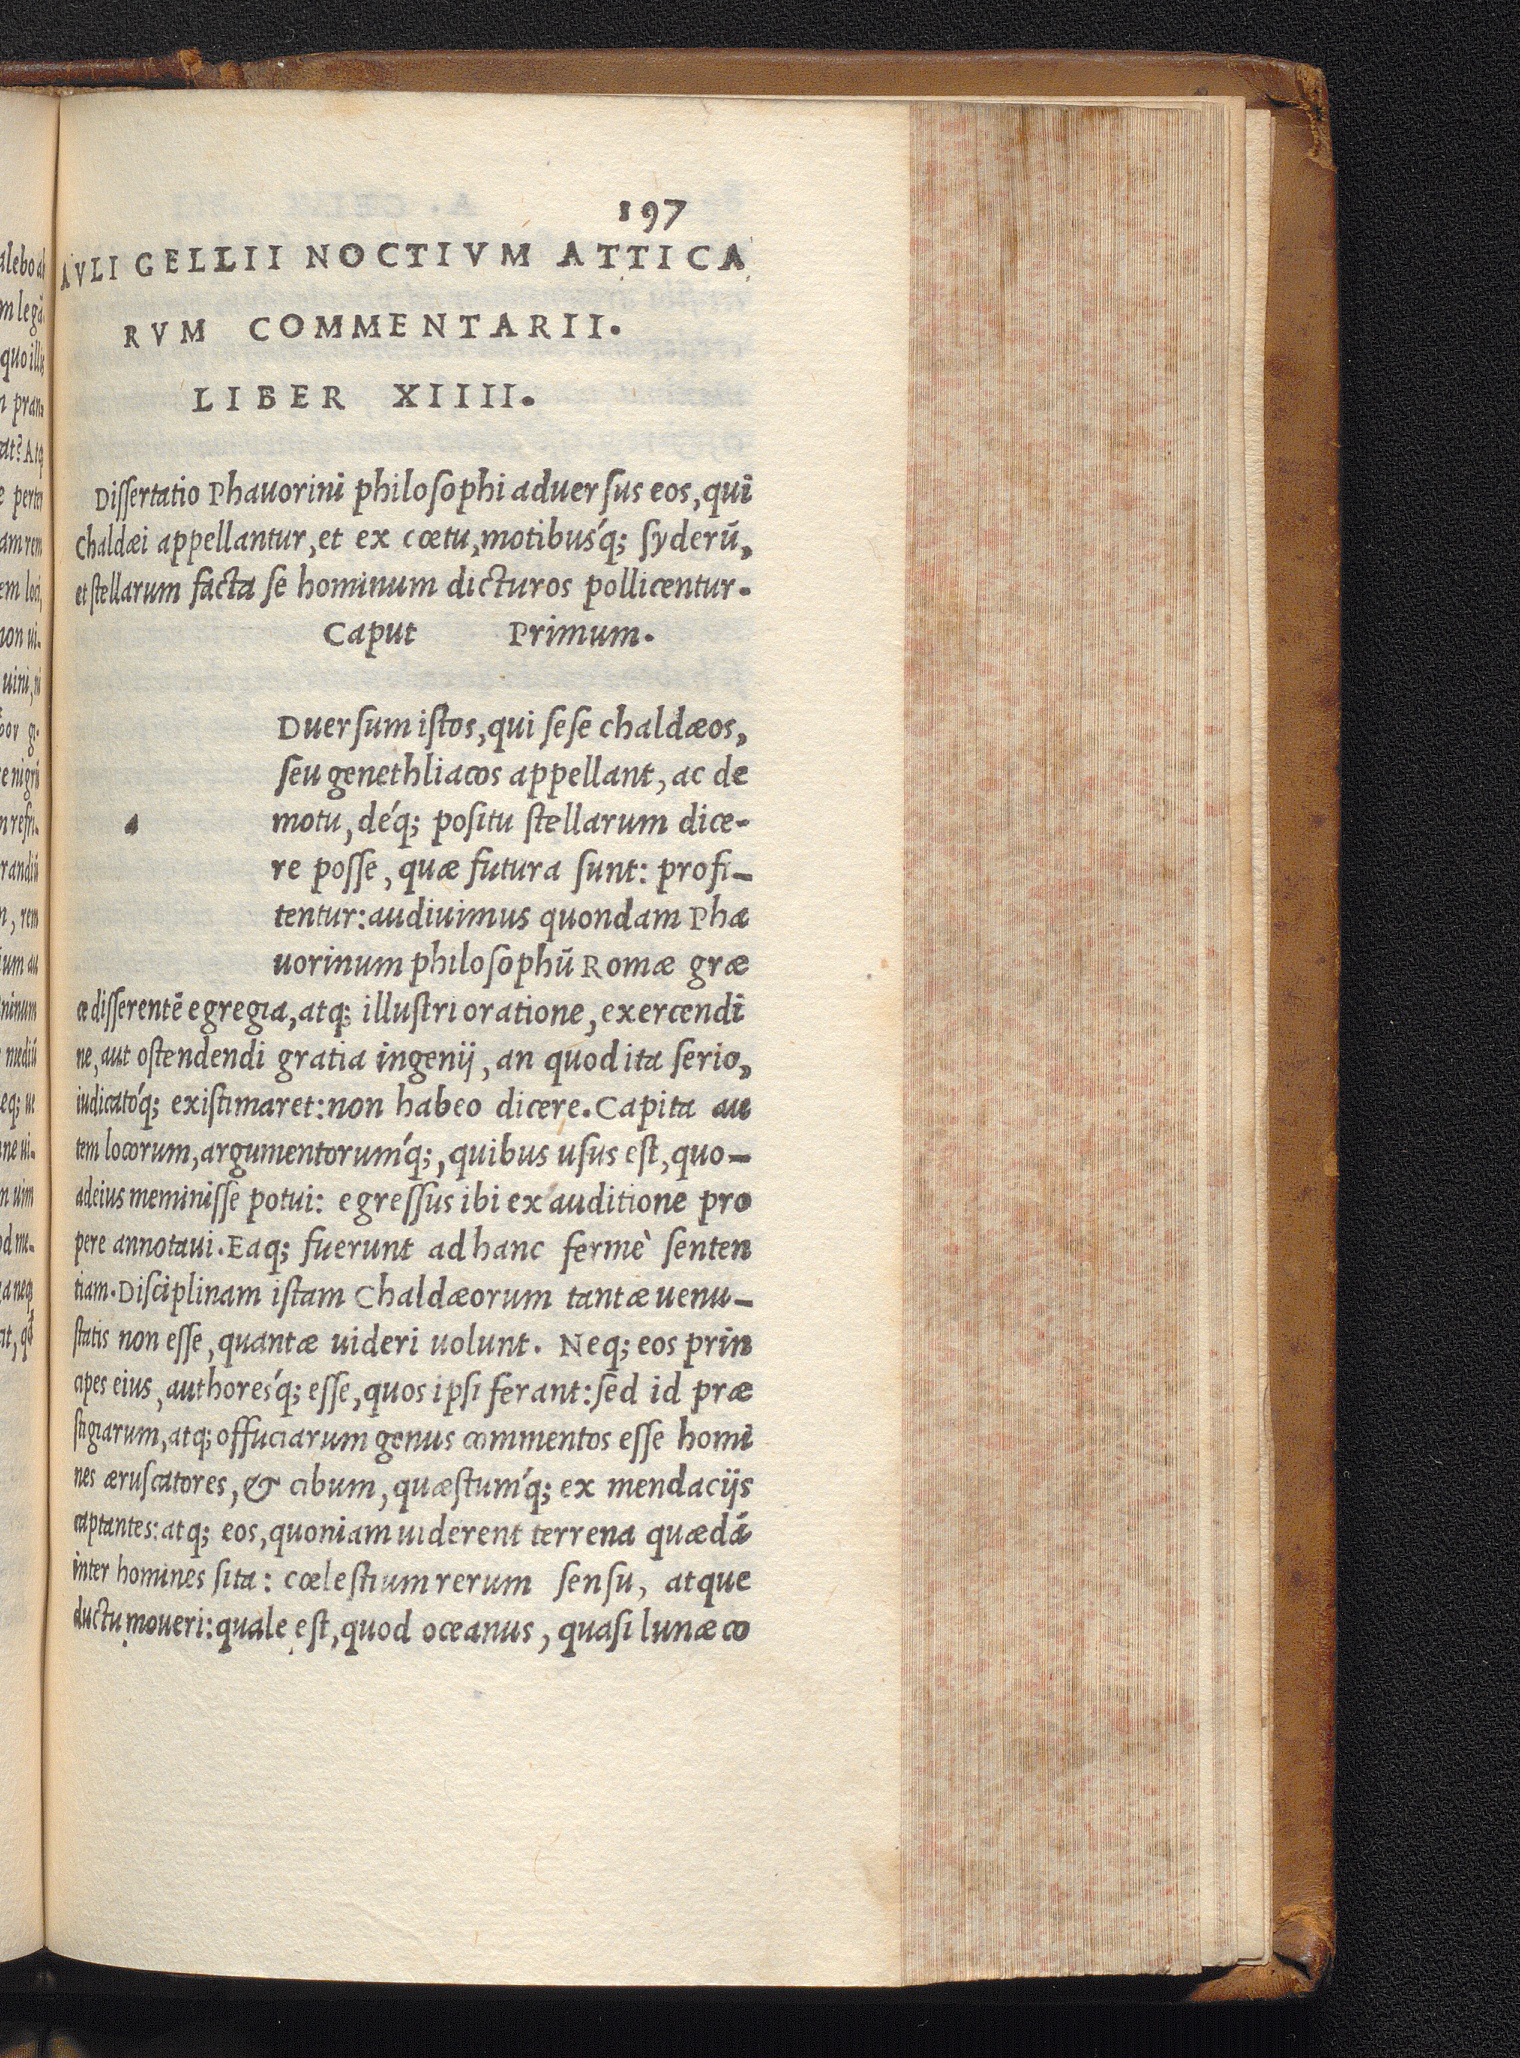 197
AVLI GELLII NOCTIVM ATTICA
RVM COMMENTARII.
LIBER XIIII.
Dissertatio Phauorini philosophi aduersus eos, qui
Chaldæi appellantur, et ex cœtu, motibus´q; syderū,
et stellarum facta se hominum dicturos pollicentur.
Caput Primum.
Duersum istos, qui sese chaldæos,
seu genethliacos appellant, ac de
a motu, dé q; positu stellarum dice-
re posse, quæ futura sunt: profi-
tentur: audiuimus quondam Pha
uorinum philosophū Romæ græ
ce disserentē egregia, atq; illustri oratione, exercendi
ne, aut ostendendi gratia ingenij, an quod ita serio,
iudicató q; existimaret: non habeo dicere. Capita au
tem locorum, argumentorum´q;, quibus usus est, quo-
ad eius meminisse potui: egressus ibi ex auditione pro
pere annotaui. Eaq; fuerunt ad hanc fermè senten
tiam. Disciplinam istam Chaldæorum tantæ uenu-
statis non esse, quantæ uideri uolunt. Neq; eos prin
cipes eius, authores´q; esse, quos ipsi ferant: sed id præ
stigiarum, atq; offuciarum genus commentos esse homi
nes æruscatores, & cibum, quæstum´q; ex mendacijs
captantes: atq; eos, quoniam uiderent terrena quædā
inter homines sita: cœlestium rerum sensu, atque
ductu moueri: quale est, quod oceanus, quasi lunæ co